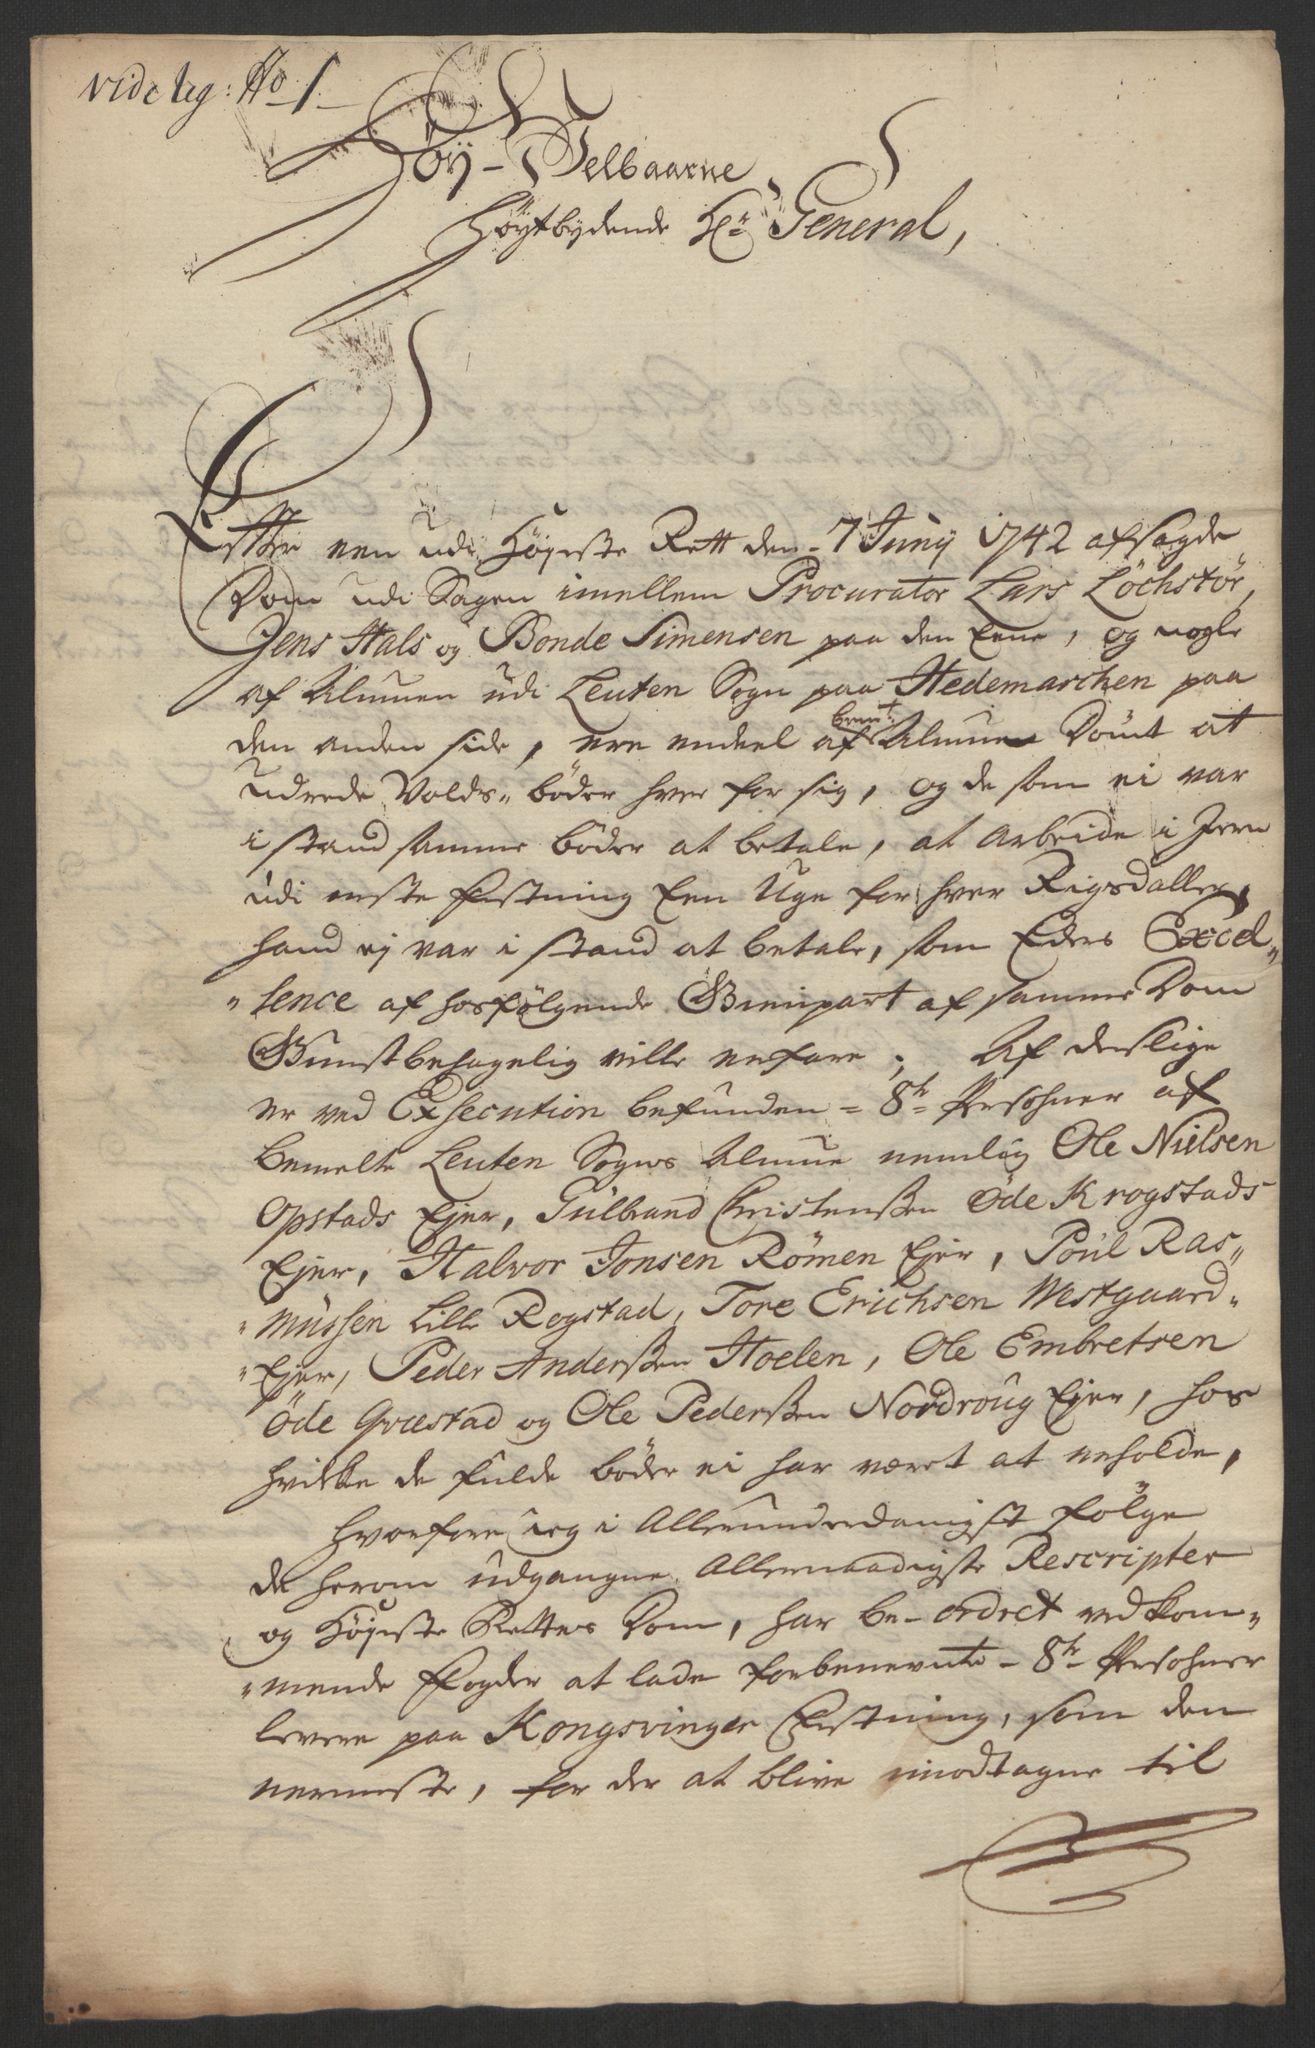 vide lig: No 1
Höy-Velbaarne
Höytbydende Hr. General,
Efter een udi Höyeste Rett den 7 Juny 1742 afsagde
Dom udi Sagen imellem Procurator Lars Löchstör,
Jens Hals og Bonde Simensen paa den Eene, og nogle
af Almuen udi Leuten Sogn paa Hedemarchen paa
den anden side, ere endeel af bemte Almue Dömt at
udrede Volds-böder hver for sig, og de som ei var
i stand samme böder at betale, at Arbeide i Jern
udi neste Festning Een Uge for hver Rigsdaller,
hand ej var i stand at betale, som Eders Excel-
-lence af hosfölgende Gienpart af samme Dom
Gunstbehagelig ville erfare; Af deslige
er ved Exsecution befunden = 8te Persohner af
bemelte Leuten Sogns Almue nemlig Ole Nielsen
Opstads Ejer, Gulbrand Christenssen Öde Krogstads
Ejer, Halvor Jonsen Römen Ejer, Poul Ras-
-mussen Lille Rogstad, Tore Erichsen Westgaard-
-Ejer, Peder Anderssen Hoelen, Ole Embretsen
Öde Græstad og Ole Pederssen Nordroug Ejer, hos
hvilke de fulde böder ei har været at erholde,
Hvorfore ieg i Allerunderdanigst fölge
de herom udgangne Allernaadigste Rescripter
og Höyeste Rettes Dom, har be-ordret vedkom-
-mende Fogder at lade forbenevnte 8te Persohner
levere paa Kongsvinger Festning, som den
nermeste, for der at blive imodtagne til